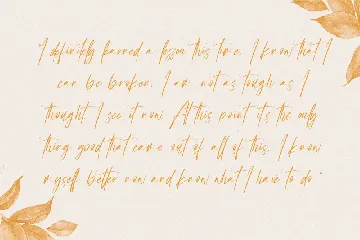 "I definitely learned a lesson this time. I know that I
can be broken. I am not as tough as I
thought. I see it now. At this point it's the only
thing good that came out of all of this. I know
myself better now and know what I have to do."